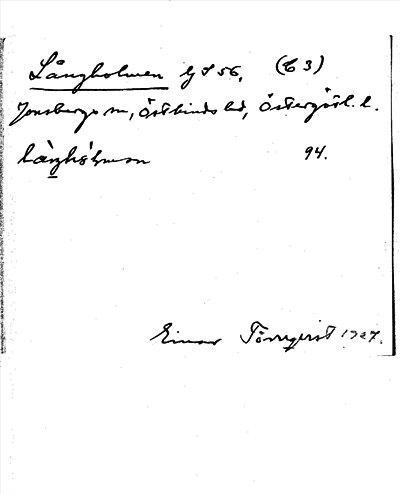 Långholmen Gf 56, (C 3)
Jonsbergs sn, Östkinds hd, Östergötl. l.
94.
Einar Törnqvist 1927.